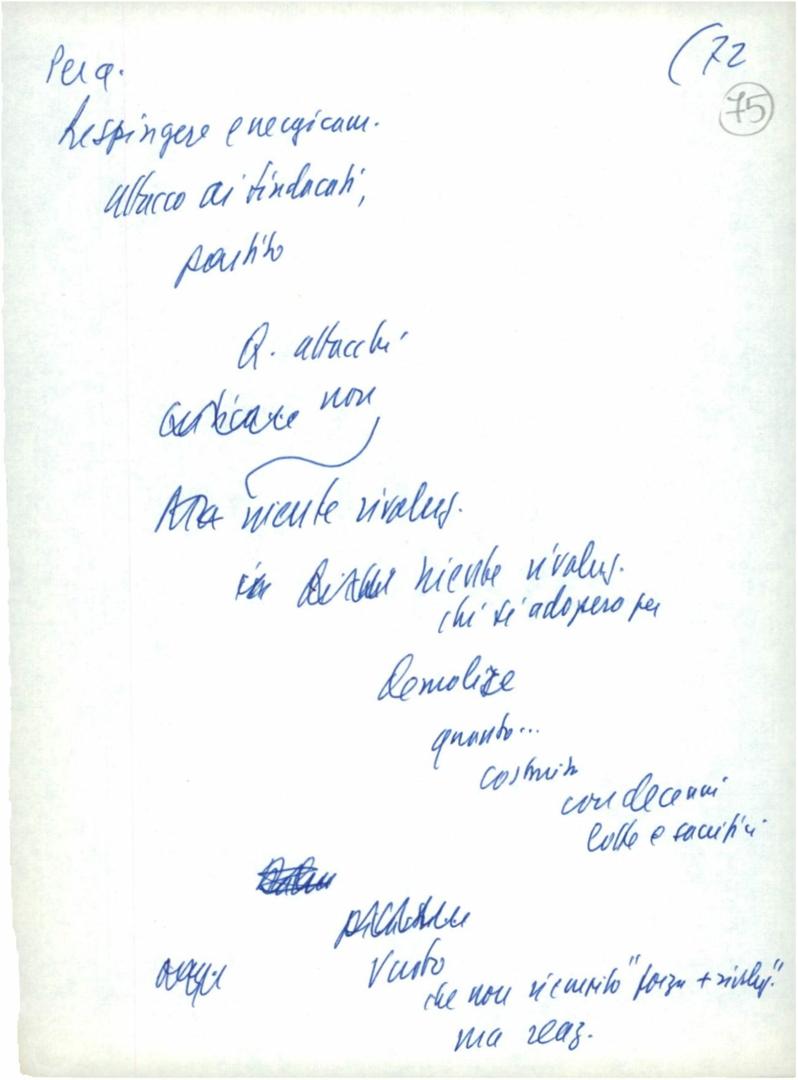 (72
75
Per q.
Respingere energicam.
attacco ai sindacati,
partito
Q. attacchi
criticare non
niente rivoluz.
in niente rivoluz.
chi si adopera per
demolire
quanto...
costruito
con decenni
lotte e sacrifici
Vuoto
che non riempito "forza + rivoluz."
ma reaz.